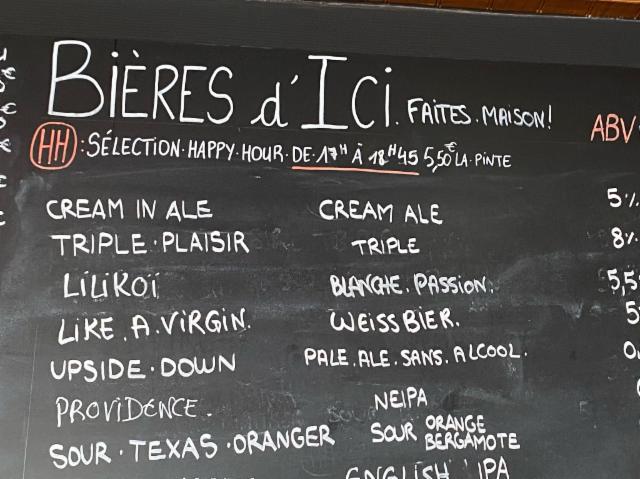 BIÈRES d'ICi. FAITES. MAISON!
ABV
HH : SÉLECTION·HAPPY·HOUR·DE·17H À 18H45 5,50€ LA·PINTE
CREAM IN ALE CREAM ALE 5%
TRIPLE·PLAISIR TRIPLE 8%
LiLiKOï BLANCHE. PASSION. 5,5
LIKE.A.VIRGIN. WEISSBIER. 5
UPSIDE·DOWN PALE.ALE.SANS.ALCOOL. 0
PROVIDENCE. NEIPA
SOUR·TEXAS·ORANGER SOUR ORANGE BERGAMOTE
ENGLISH IPA